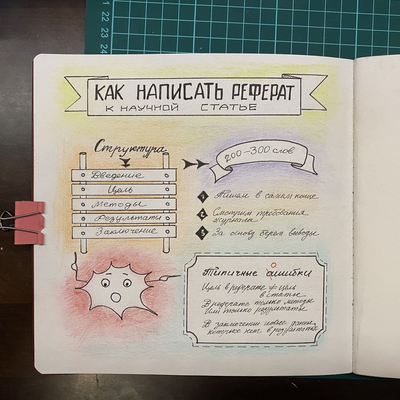 КАК НАПИСАТЬ РЕФЕРАТ
К НАУЧНОЙ СТАТЬЕ
Структура
Введение
Цель
Методы
Результаты
Заключение
200-300 слов
1 Пишем в самом конце
2 Смотрим требования
журнала
3 За основу берем выводы
Типичные ошибки
Цель в реферате ≠ цель
в статье
В реферате только методы
или только результаты
В заключении новые данные,
которых нет в результатах
22 23 24